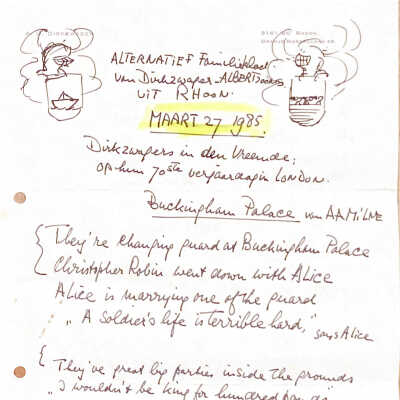 ALTERNATIEF Familieblad
van Dirkzwager-ALBERTS
UIT RHOON.
MAART 27 1985.
Dirkzwagers in den Vreemde;
op hun 70ste verjaardag in LONDON.
Buckingham Palace van AA MILNE
They're changing guard at Buckingham Palace
Christopher Robin went down with ALICE
ALICE is marrying one of the guard
"A soldier's life is terrible hard," says Alice
They've great big parties inside the grounds
"I wouldn't be king for hundred pounds"